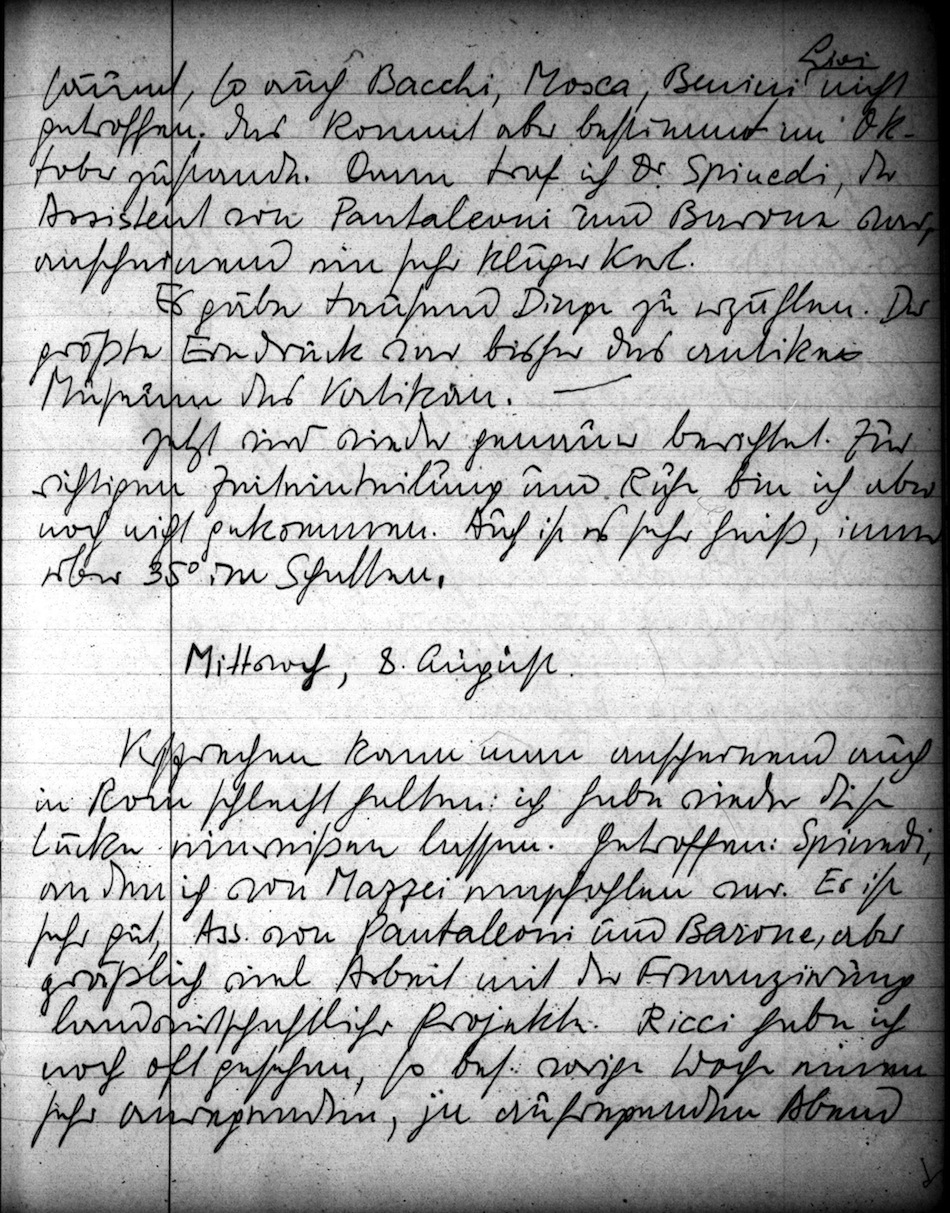 Livi
räumt, so auch Bacchi, Mosca, Benini nicht
getroffen. Das kommt aber bestimmt im Ok-
tober zustande. Dann traf ich Dr. Spinedi, der
Assistent von Pantaleoni und Barone war,
anscheinend ein sehr kluger Kerl.
Es gäbe tausend Dinge zu erzählen. Der
größte Eindruck war bisher das antike
Museum des Vatikan. —
Jetzt wird wieder genauer berichtet. Zur
richtigen Zeiteinteilung und Ruhe bin ich aber
noch nicht gekommen. Auch ist es sehr heiß, immer
über 35° im Schatten.
Mittwoch, 8. August.
Versprechen kann man anscheinend auch
in Rom schlecht halten: ich habe wieder diese
Lücke einreißen lassen. Getroffen: Spinedi,
an den ich von Mazzei empfohlen war. Er ist
sehr gut, Ass. von Pantaleoni und Barone, aber
gräßlich viel Arbeit mit der Finanzierung
landwirtschaftlicher Projekte. Ricci habe ich
noch oft gesehen, so bes. vorige Woche einen
sehr anregenden, ja aufregenden Abend